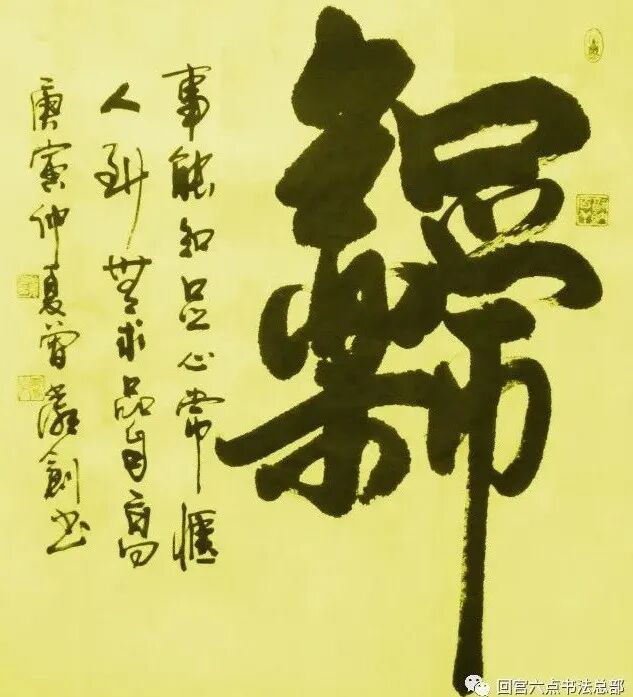 知足常樂
事能知足心常惬
人到無求品自高
庚寅仲夏曾創书
回宫六点书法总部